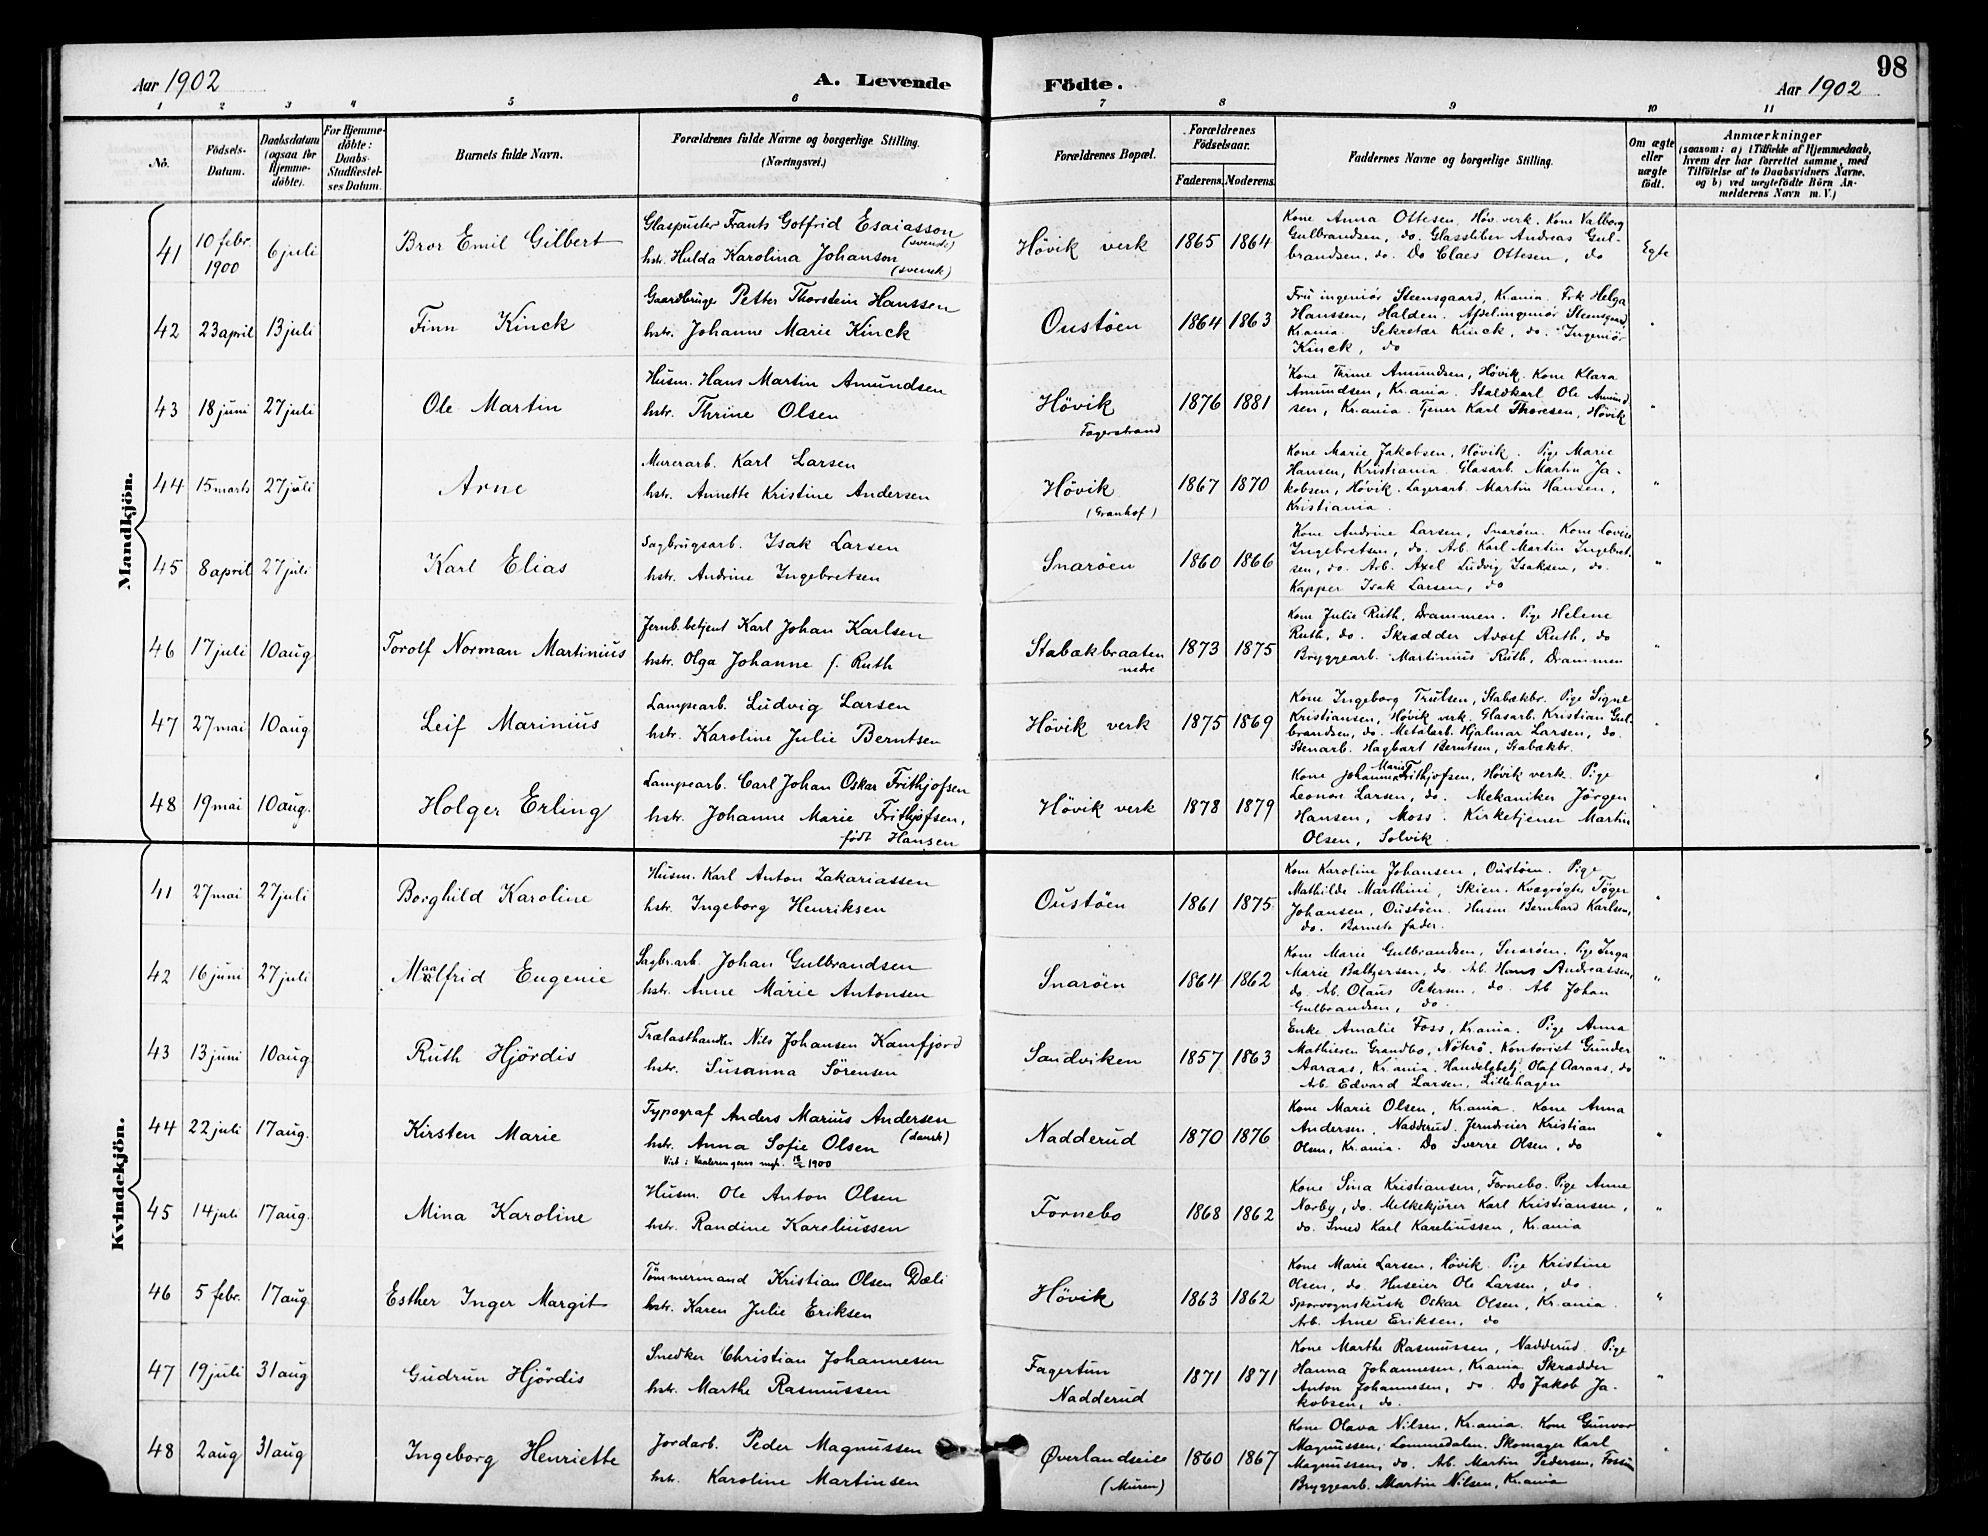 98
Aar 1902
A. Levende
Födte.
Aar 1902
1 2 3 4 5 6 7 8 9 10 11
No.
Födsels-
Datum.
Daabsdatum
(ogsaa for
Hjemme-
döbte).
For Hjemme-
döbte:
Daabs-
Stadfæstel-
ses Datum.
Barnets fulde Navn.
Forældrenes fulde Navne og borgerlige Stilling.
(Næringsvei.)
Forældrenes Bopæl.
Forældrenes
Födselsaar.
Faderens. Moderens.
Faddernes Navne og borgerlige Stilling.
Om ægte
eller
uægte
födt.
Anmærkninger
(saasom: a) i Tilfælde af Hjemmedaab,
hvem der har forrettet samme, med
Tilföielse af to Daabsvidners Navne.
og b) ved uægtefödte Börn An-
melderens Navn m. V.)
Mandkjön.
41
10 febr.
1900
6 juli
Bror Emil Gilbert
Glaspuster Frants Gotfrid Esaiasson
(svensk)
hstr. Hulda Karolina Johanson
(svensk)
Hövik verk
1865 1864
Kone Anna Ottesen, Höv. verk. Kone Valborg
Gulbrandsen, do. Glassliber Andreas Gul-
brandsen, do. Do Claes Ottesen, do
Egte
42
23 april
13 juli
Finn Kinck
Gaardbruger Petter Thorstein Hanssen
hstr. Johanne Marie Kinck
Oustöen
1864 1863
Fru ingeniör Steensgaard, Kr.ania. Frk Helga
Hanssen, Halden. Afdel.ingeniör Steensgaard,
Kr.ania. Sekretær Kinck, do. Ingeniör
Kinck, do
"
43
18 juni
27 juli
Ole Martin
Husm. Hans Martin Amundsen
hstr. Thrine Olsen
Hövik
Fagerstrand
1876 1881
Kone Thrine Amundsen, Hövik. Kone Klara
Amundsen, Kr.ania. Staldkarl Ole Amund
sen, Kr.ania. Tjener Karl Thoresen, Hövik
"
44
15 marts
27 juli
Arne
Murerarb. Karl Larsen
hstr. Annette Kristine Andersen
Hövik
(Granhof)
1867 1870
Kone Marie Jakobsen, Hövik. Pige Marie
Hansen, Kristiania. Glasarb. Martin Ja-
kobsen, Hövik. Lagerarb. Martin Hansen,
Kristiania.
"
45
8 april
27 juli
Karl Elias
Sagbrugsarb. Isak Larsen
hstr. Andrine Ingebretsen
Snaröen
1860 1866
Kone Andrine Larsen, Snaröen. Kone Lovise
Ingebretsen, do. Arb. Karl Martin Ingebret
sen, do. Arb. Axel Ludvig Isaksen, do.
Kapper Isak Larsen, do
"
46
17 juli
10 aug
Torolf Norman Martinius
Jernb.betjent Karl Johan Karlsen
hstr. Olga Johanne f. Ruth
Stabækbraaten
nedre
1873 1875
Kone Julie Ruth, Drammen. Pige Helene
Ruth, do. Skrædder Adolf Ruth, do
Bryggearb. Martinius Ruth, Drammen
"
47
27 mai
10 aug
Leif Marinius
Lampearb. Ludvig Larsen
hstr. Karoline Julie Berntsen
Hövik verk
1875 1869
Kone Ingeborg Trulsen, Stabækbr. Pige Signe
Kristiansen, Hövik verk. Glasarb. Kristian Gul-
brandsen, do. Metalarb. Hjalmar Larsen, do.
Stenarb. Hagbart Berntsen, Stabækbr.
"
48
19 mai
10 aug.
Holger Erling
Lampearb. Carl Johan Oskar Frithjofsen
hstr. Johanne Marie Frithjofsen,
født Hansen
Hövik verk
1878 1879
Marie
Kone Johanne Frithjofsen, Hövik verk. Pige
Leonore Larsen, do. Mekaniker Jörgen
Hansen, Moss. Kirketjener Martin
Olsen, Solvik.
"
Kvindekjön.
41
27 mai
27 juli
Borghild Karoline
Husm. Karl Anton Zakariassen
hstr. Ingeborg Henriksen
Oustöen
1861 1875
Kone Karoline Johansen, Oustöen. Pige
Mathilde Marthini, Skien. Kvægrögter Töger
Johansen, Oustöen. Husm Bernhard Karlsen,
do. Barnets fader.
"
42
16 juni
27 juli
Maalfrid Eugenie
Sagbr.arb. Johan Gulbrandsen
hstr. Anne Marie Antonsen
Snaröen
1864 1862
Kone Marie Gulbrandsen, Snaröen. Pige Inga
Marie Baltzersen, do. Arb. Hans Andreassen,
do. Arb. Olaus Petersen, do. Arb Johan
Gulbrandsen, do.
"
43
13 juni
10 aug
Ruth Hjördis
Trælasthandler Nils Johansen Kamfjord
hstr. Susanna Sörensen
Sandviken
1857 1863
Enke Amalie Foss, Kr.ania. Pige Anna
Mathiesen Grandbo, Nöterö. Kontorist Gunder
Aaraas, Kr.ania. Handelsbetj. Olaf Aaraas, do
Arb. Edvard Larsen, Lillehagen
"
44
22 juli
17 aug.
Kirsten Marie
Typograf Anders Marius Andersen
(dansk)
hstr. Anna Sofie Olsen
Viet i Vaalerengens mgh. 1900
Nadderud
1870 1876
Kone Marie Olsen, Kr.ania. Kone Anna
Andersen, Nadderud. Jerndreier Kristian
Olsen, Kr.ania. Do Sverre Olsen, do
"
45
14 juli
17 aug.
Mina Karoline
Husm. Ole Anton Olsen
hstr. Randine Kareliussen
Fornebo
1868 1862
Kone Sina Kristiansen, Fornebo. Pige Anne
Norby, do. Melkekjörer Karl Kristiansen,
do. Smed Karl Kareliussen, Kr.ania
"
46
5 febr.
17 aug.
Esther Inger Margit
Tömmermand Kristian Olsen Dæli
hstr. Karen Julie Eriksen
Hövik
1863 1862
Kone Marie Larsen, Hövik. Pige Kristine
Olsen, do. Huseier Ole Larsen, do.
Sporvognskusk Oskar Olsen, Kr.ania.
Arb. Arne Eriksen, do
"
47
19 juli
31 aug
Gudrun Hjördis
Snedker Christian Johannesen
hstr. Marthe Rasmussen
Fagertun
Nadderud
1871 1871
Kone Marthe Rasmussen, Nadderud. Pige
Hanna Johannesen, Kr.ania. Skrædder
Anton Johannesen, do. Do Jakob Ja-
kobsen, do.
"
48
2 aug
31 aug
Ingeborg Henriette
Jordarb. Peder Magnussen
hstr. Karoline Martinsen
Øverlandseie
(Muren)
1860 1867
Kone Olava Nilsen, Kr.ania. Kone Gunvor
Magnussen, Lommedalen. Skomager Karl
Magnussen, do. Arb. Martin Pedersen, Fossum
Bryggearb. Martin Nilsen, Kr.ania
"